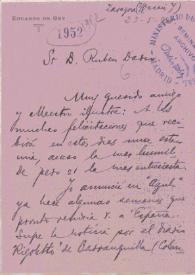 EDUARDO DE ORY
Zaragoza (Marzo 7)
23-5
1952
MINISTERIO DE
SEMINARIO
ARCHIVO
MADRID
Sr D. Rubén Darío
Muy querido amigo
y Maestro ilustre: A las
muchas felicitaciones que reci-
birá en estos días una esta
mía, acaso la más humil-
de pero sí la más entusiasta.
Yo anuncié en "Azul"
ya hace algunas semanas que
pronto vendría V. a España.
Supe la noticia por el diario
Rigoletto" de Barranquilla (Colom